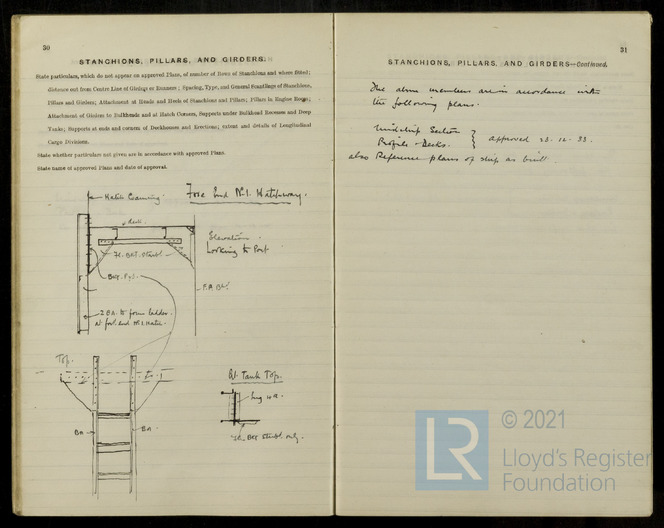 30
STANCHIONS, PILLARS, AND GIRDERS.
State particulars, which do not appear on approved Plans, of number of Rows of Stanchions and where fitted;
distance out from Centre Line of Girders or Runners; Spacing, Type, and General Scantlings of Stanchions,
Pillars and Girders; Attachment at Heads and Heels of Stanchions and Pillars; Pillars in Engine Room;
Attachment of Girders to Bulkheads and at Hatch Corners, Supports under Bulkhead Recesses and Deep
Tanks; Supports at ends and corners of Deckhouses and Erections; extent and details of Longitudinal
Cargo Divisions.
State whether particulars not given are in accordance with approved Plans.
State name of approved Plans and date of approval.
Fore End Nº1. Hatchway.
Hatch Coaming.
Elevation
Looking to Port
Fl. BKT. Starbd.
2 BA. to form ladder
at for'd end Nº1. Hatch.
Top.
BA
BA.
At Tank Top.
Lug
Fl. BKT Starbd. only.
31
STANCHIONS, PILLARS, AND GIRDERS—Continued.
The above members are in accordance with
the following plans.
Midship Section
Profile & Decks. } approved 23.12.33.
also Reference plans of ship as built
LR
© 2021
Lloyd's Register
Foundation